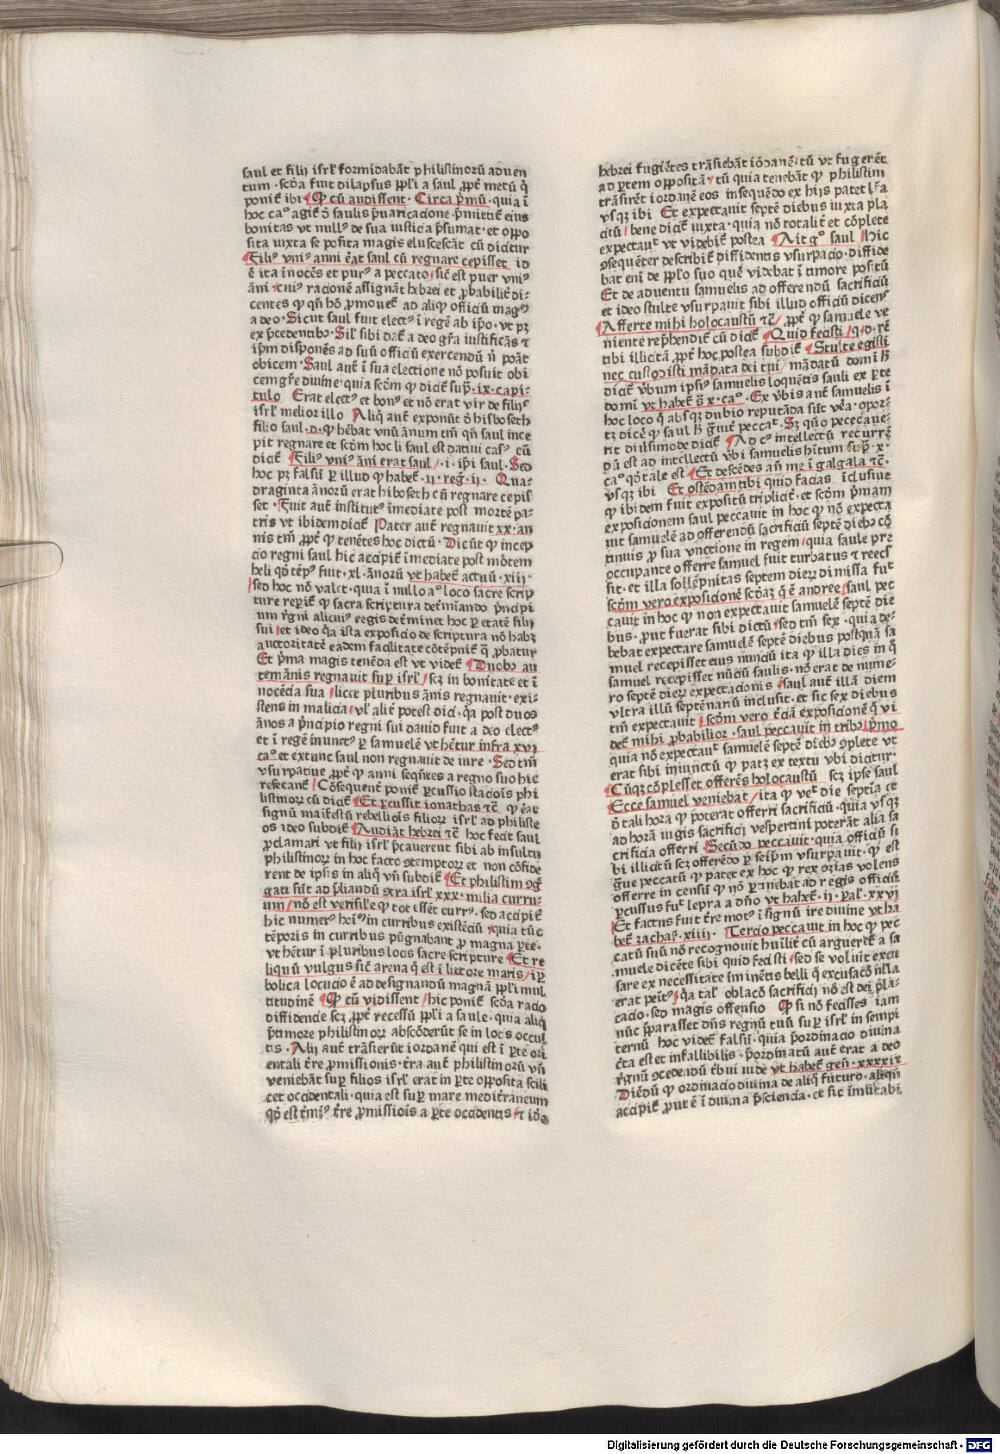 saul et filij isrl' formidabāt philistinorū aduen
tum · scd̄a fuit dilapsus ppl'i a saul ꝓpt̄ metū q̄
ponit̄ ibi Qꝫ cū audissent · Circa p̄mū · quia ī
hoc cao agit̄ ꝺ saulis p̄uaricacione · p̄mittit̄ eius
bonitas vt nullꝰ de sua iusticia p̄sumat · et oppo
sita iuxta se posita magis elucescāt cū dicitur
Filiꝰ vniꝰ anni ēat saul cū regnare cepisset id
ē ita inocēs et purꝰ a peccato sic̄ est puer vniꝰ
āni cuiꝰ racionē assignāt hebrei et ꝓbabilit̄ di-
centes ꝙ qn̄ hō ꝓmouet̄ ad aliqꝫ officiū magꝰ
a deo · Sicut saul fuit electꝰ ī regē ab ip̄o · vt pꝫ
ex p̄cedentibꝰ · Sil' sibi dat̄ a deo gr̄a iustificās ⁊
ip̄m disponēs ad suū officiū exercendū n̄ poāt
obicem · Saul aut̄ ī sua electione nō posuit obi
cem gr̄e diuine · quia scd̄m ꝙ dicit̄ sup̄ · ix · capi-
tulo Erat electꝰ et bonꝰ et nō erat vir de filijs
isrl' melior illo Aliqͥ aut̄ exponūt ꝺ hisboseth
filio saul · d · ꝙ hēbat vnū ānum tm̄ qn̄ saul ince
pit regnare et scd̄m hoc li saul est datiui casꝰ cū
dicit̄ Filiꝰ vniꝰ āni erat saul / · i · ip̄i saul · Sed
hoc pꝫ falsū ꝑ illud qꝫ habet̄ · ij · reg̅ · ij · Qua-
draginta ānorū erat hiboseth cū regnare cepis
set · Fuit aut̄ institutꝰ īmediate post mortē pa-
tris vt ibidem dicit̄ Pater aut̄ regnauit xx · an
nis tm̄ ꝓpt̄ ꝙ tenētes hoc dictū · Dicūt ꝙ incep
cio regni saul hic accipit̄ īmediate post mōtem
heli qd̄ tēpꝰ fuit · xl · ānorū vt habet̄ actuū · xiij ·
sed hoc nō valet · quia ī nullo ao loco sacre scrip
ture repit̄ ꝙ sacra scriptura det̄miando p̄ncipi
um r̄gni alicuiꝰ regis det̄minet hoc ꝑ etatē filij
sui et ideo q̄a ista exposicio de scriptura nō habꝫ
auctoritatē eadem facilitate cōtēpnit̄ q̄ ꝓbatur
Et p̄ma magis tenēda est vt videt̄ Duobꝰ au
tem ānis regnauit sup̄ isrl' scꝫ in bonitate et ī
nocēcia sua licet pluribus ānis regnauit · exi-
stens in malicia vl' alit̄ potest dici · q̄a post duos
ānos a p̄ncipio regni sui dauid fuit a deo electꝰ
et ī regē inunctꝰ ꝑ samuelē vt hētur infra xvj
cao et extunc saul non regnauit de iure · Sed tm̄
vsurpatiue ꝓpt̄ ꝙ anni seqn̄tes a regno suo hic
resecant̄ Cōsequent̄ ponit̄ ꝑcussio staciois phi
listinorꝫ cū dicit̄ Et ꝑcussit ionathas tc̄ ꝙ ēat
signū maifestū rebelliois filiorꝫ isrl' ad philiste
os ideo subdit̄ Audiāt hebrei tc̄ hoc fecit saul
ꝓclamari vt filij isrl' p̄cauerent sibi ab insultu
philistinorꝫ in hoc facto ꝯtemptorꝫ et non cōfide
rent de ipsis in aliqͦ vn̄ subdit̄ Et philistim ꝯg̅
gati sūt ad p̄liandū ꝯtra isrl' xxx · milia curru-
um / nō est verisile ꝙ tot eēt currꝰ · sed accipit̄
hic numerꝰ hoīꝫ in curribus existēciū quia tūc
tēporis in curribus pūgnabant ꝓ magna ꝑte ·
vt hētur ī pluribus locis sacre scripture Et re
liquū vulgus sic̄ arena q̄ est ī littore maris / ipꝫ
bolica locucio ē ad designandū magnā ppl'i mul
titudinē Qꝫ cū vidissent / hic ponit̄ scd̄a racio
diffidencie scꝫ ꝓpt̄ recessū ppl'i a saule · quia aliqͥ
p̄ timore philistinorꝫ abscōderūt se in locis occul
tis · Alij aut̄ trāsierūt iordanē qui est ī ꝑte ori
entali t̄re ꝓmissionis · t̄ra aut̄ philistinorū vn̄
veniebāt sup̄ filios isrl' erat in ꝑte opposita scili
cet occidentali · quia est sup̄ mare medit̄raneum
qd̄ est t̄mīꝰ t̄re ꝓmissiois a ꝑte occidentis ⁊ iō
hebrei fugiētes trāsiebāt iordanē · tū vt fugerēt
ad ꝑtem oppositā ⁊ tū quia tenebāt ꝙ philistim
trāsirēt iordanē eos insequēdo ex hijs patet l'ra
vsqꝫ ibi Et expectauit septē diebus iuxta pla
citū / bene dicit̄ iuxta · quia nō totalit̄ et cōplete
expectauit vt videbit̄ postea Ait go saul / Hic
ꝯsequēter describit̄ diffidentis vsurpacio · diffide
bat enī de ppl'o suo quē videbat ī timore positū
Et de aduentu samuelis ad offerendū sacrificiū
et ideo stulte vsurpauit sibi illud officiū dicens
Afferte mihi holocaustū tc̄ / ꝓpt̄ ꝙ samuele ve
niente rep̄hendit̄ cū dicit̄ Quid fecisti / q · d · rē
tibi illicitā ꝓpt̄ hoc postea subdit̄ Stulte egisti
nec custodisti mādata dei tui / mādatū domī h̄
dicit̄ v̄bum ipsiꝰ samuelis loquētis sauli ex ꝑte
domī vt habet̄ s̄ x · cao · Ex v̄bis aut̄ samuelis ī
hoc loco q̄ absqꝫ dubio reputāda sūt vēa · opor-
tꝫ dicē ꝙ saul h̄ g̅uit̄ peccat̄ · Sꝫ qūo peccaue-
rit diūsimode dicit̄ Ad cꝰ intellectū recurrē
dū est ad intellectū v̄bi samuelis hitum sup̄ · x ·
cao qd̄ tale est Et descēdes añ me ī galgala tc̄ ·
vsqꝫ ibi Et ostēdam tibi quid facias īclusiue
ꝙ ibidem fuit expositū triplicit̄ · et scd̄m p̄mam
exposicionem saul peccauit in hoc ꝙ nō expecta
uit samuelē ad offerendū sacrificiū septē diebꝰ cō
tinuis ꝓ sua vnctione in regem quia saule pre
occupante offerre samuel fuit turbatus ⁊ recess
sit · et illa sollēpnitas septem dierꝫ dimissa fut̄
scd̄m vero exposicionē scd̄aꝫ q̄ ē andree / saul pec
cauit in hoc ꝙ non expectauit samuelē septē die
bus · prout fuerat sibi dictū sed tm̄ sex · quia de-
bebat expectare samuelē septē diebus postquā sa
muel recepisset eius nunciū ita ꝙ illa dies in q̄
samuel recepisset nūciū saulis · nō erat de nume-
ro septē dierꝫ expectacionis saul aut̄ illā diem
vltra illū septēnariū inclusit · et sic sex diebus
tm̄ expectauit scd̄m vero t̄ciā exposicionē q̄ vi
det̄ mihi ꝓbabilior · saul peccauit in tribꝰ p̄mo
quia nō expectauit samuelē septē diebꝰ ꝯplete vt
erat sibi iniunctū ꝙ patꝫ ex textu vbi dicitur ·
Cūqꝫ cōplesset offerēs holocaustū scꝫ ipse saul
Ecce samuel veniebat / ita ꝙ veit die septīa et
ꝺ tali hora ꝙ poterat offerri sacrificiū · quia vsqꝫ
ad horā iugis sacrificij vespertini poterāt alia sa
crificia offerri Secūdo peccauit · quia officiū si
bi illicitū scꝫ offerēdo ꝑ seip̄m vsurpauit · ꝙ est
g̅ue peccatū ꝙ patet ex hoc ꝙ rex ozias volens
offerre in censū ꝙ nō ꝑtinebat ad regis officiū
ꝑcussus fuit lepra a dn̄o vt habet̄ · ij · pal' · xxvj
Et factus fuit t̄re motꝰ ī signū ire diuine vt ha
bet̄ zachar̄ · xiiij · Tercio peccauit in hoc ꝙ pec
catū suū nō recognouit huīlit̄ cū argueret̄ a sa
muele dicēte sibi quid fecisti sed se voluit excu
sare ex necessitate īminētis belli q̄ excusacō nl'la
erat penitꝰ q̄a tal' oblacō sacrificij nō est dei pla-
cacio · sed magis offensio Qꝫ si nō fecisses iam
nūc p̄parasset dn̄s regnū tuū sup̄ isrl' in sempi
ternū hoc videt̄ falsū · quia p̄ordinacio diuina
c̄ta est et infallibilis · p̄ordinatū aut̄ erat a deo
r̄gnū ꝯcedendū t̄bui iude vt habet̄ gen̄ · xxxxix
Diēdū ꝙ ordinacio diuina de aliqͦ futuro · aliqn̄
accipit̄ prout ē ī diuina p̄sciencia · et sic īmutabi
Digitalisierung gefördert durch die Deutsche Forschungsgemeinschaft - DFG